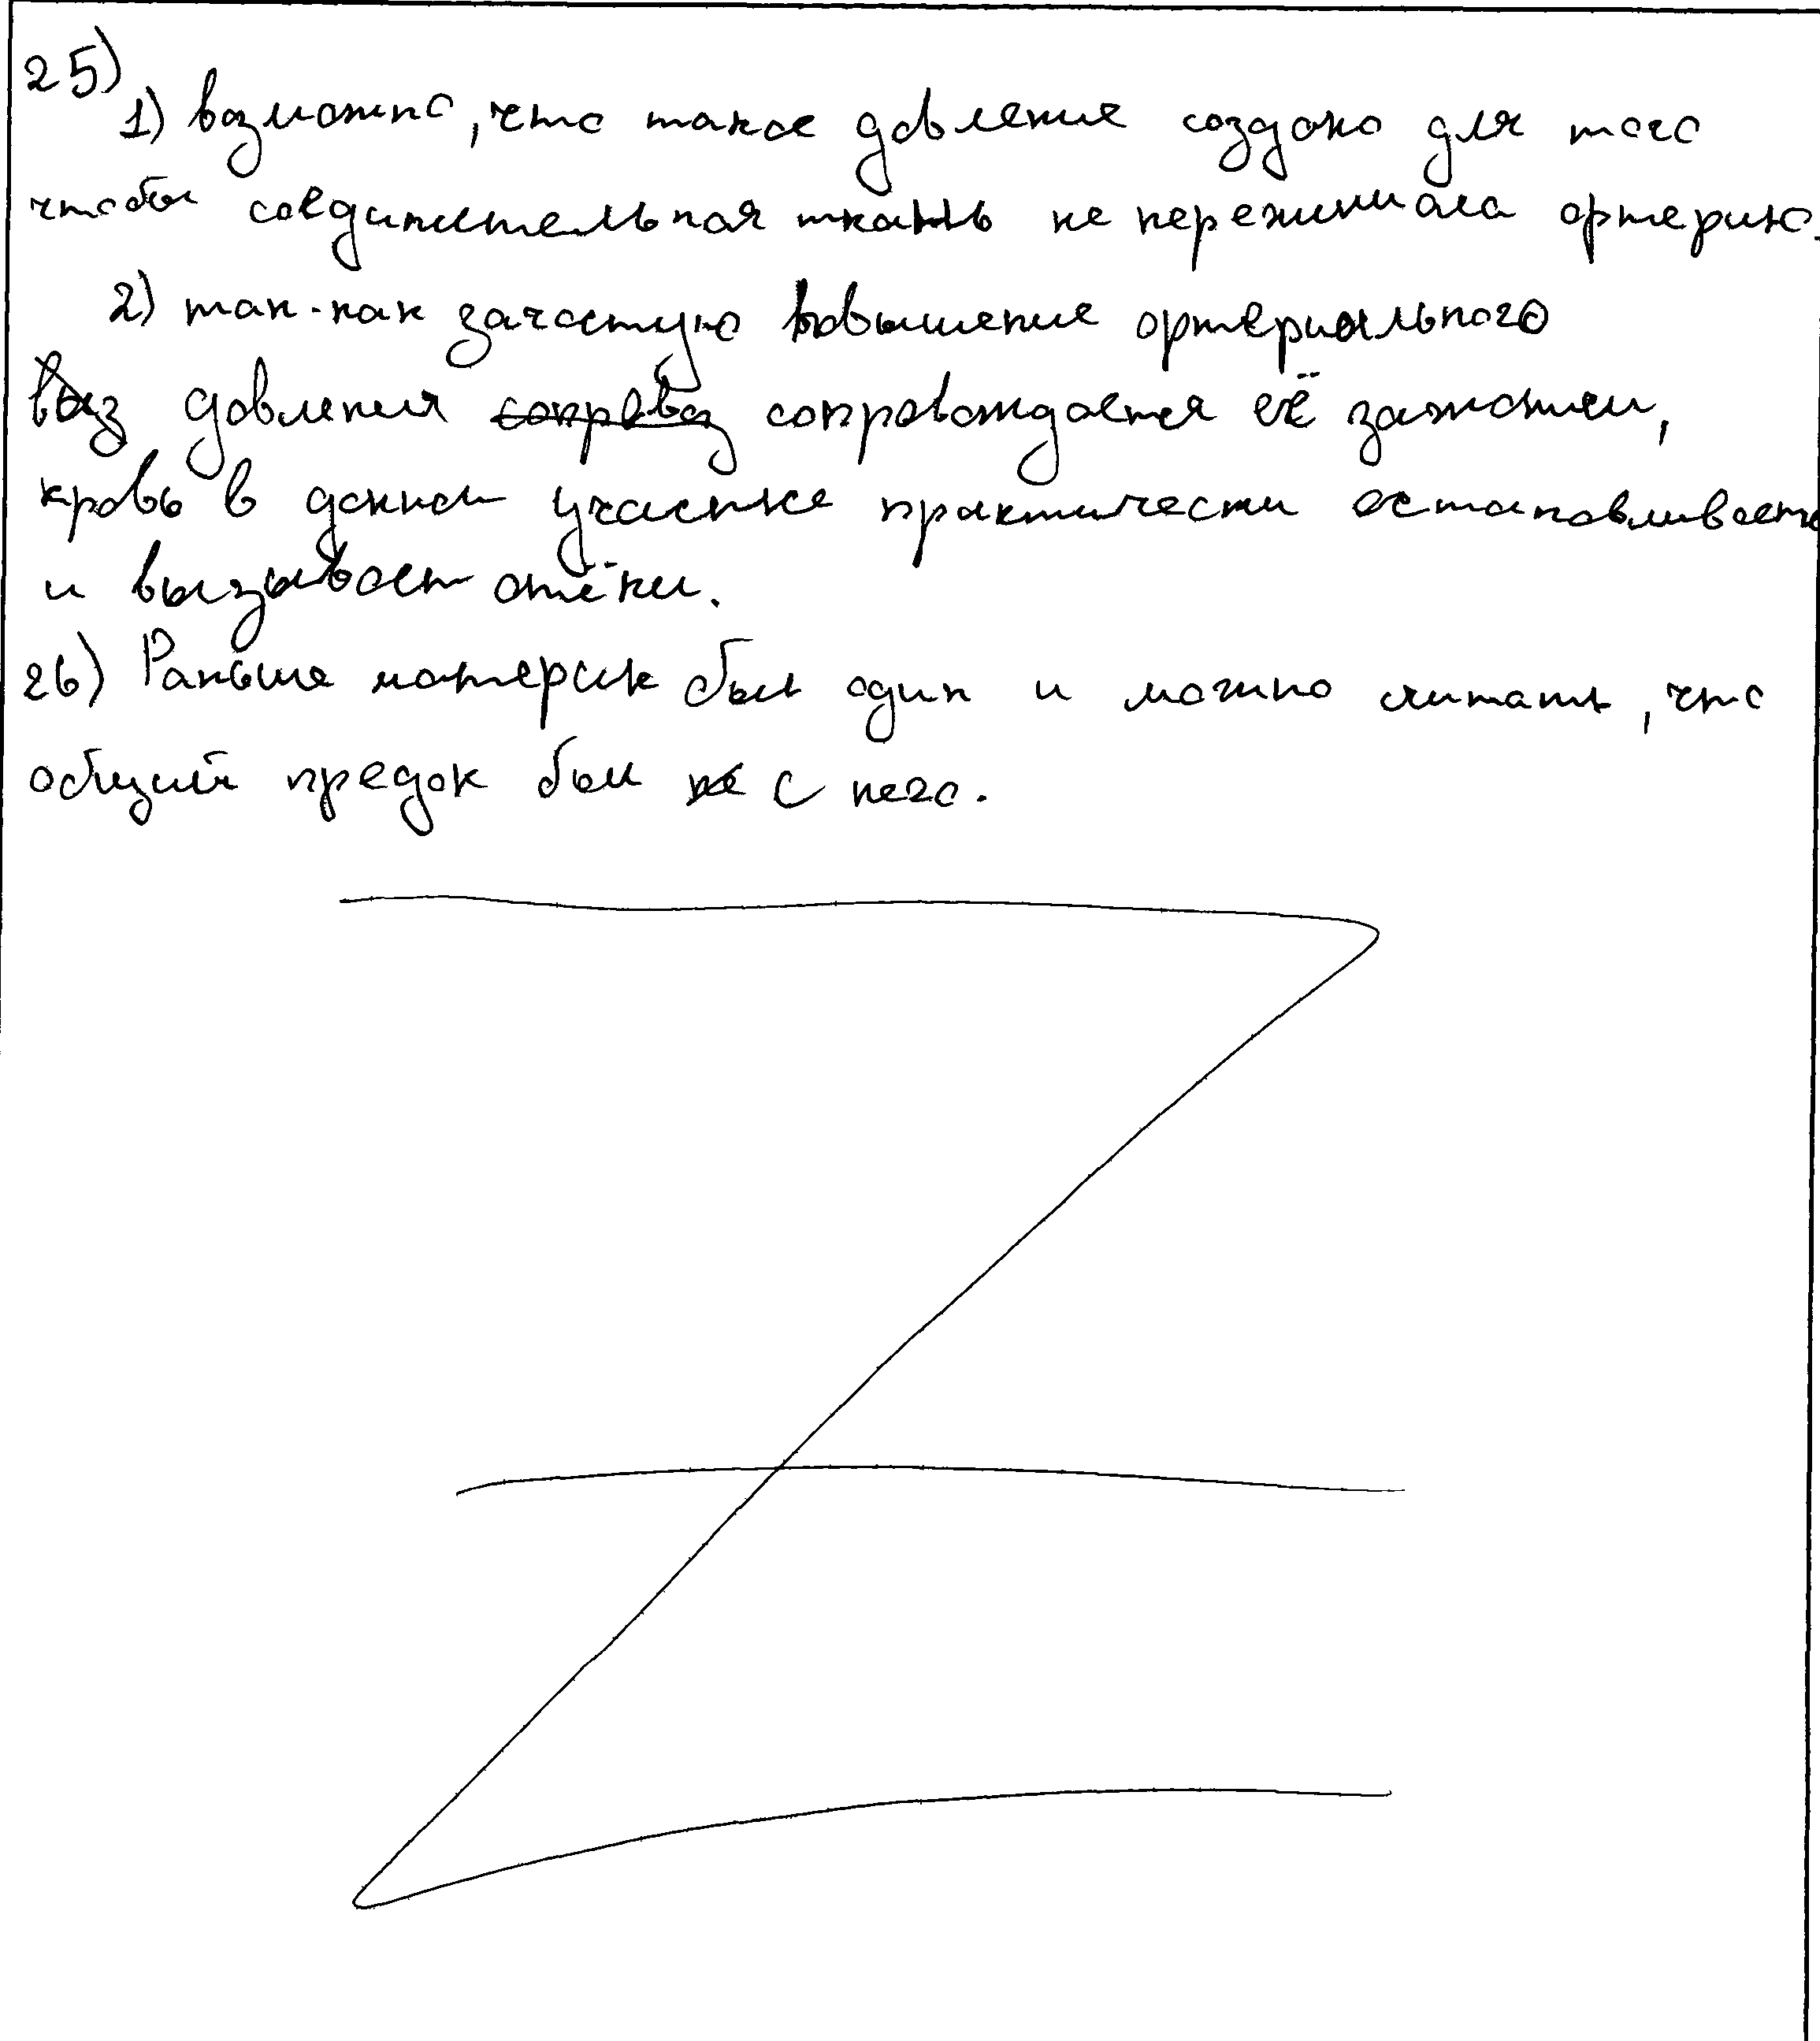 25)
1) возможно, что такое давление создано для того
чтобы соединительная ткань не пережимала артерию.
2) так-как зачастую повышение артериального
давления сопровождается её зажатием,
кровь в данном участке практически останавливается
и вызывает отёки.
26) Раньше материк был один и можно считать, что
общий предок был с него.